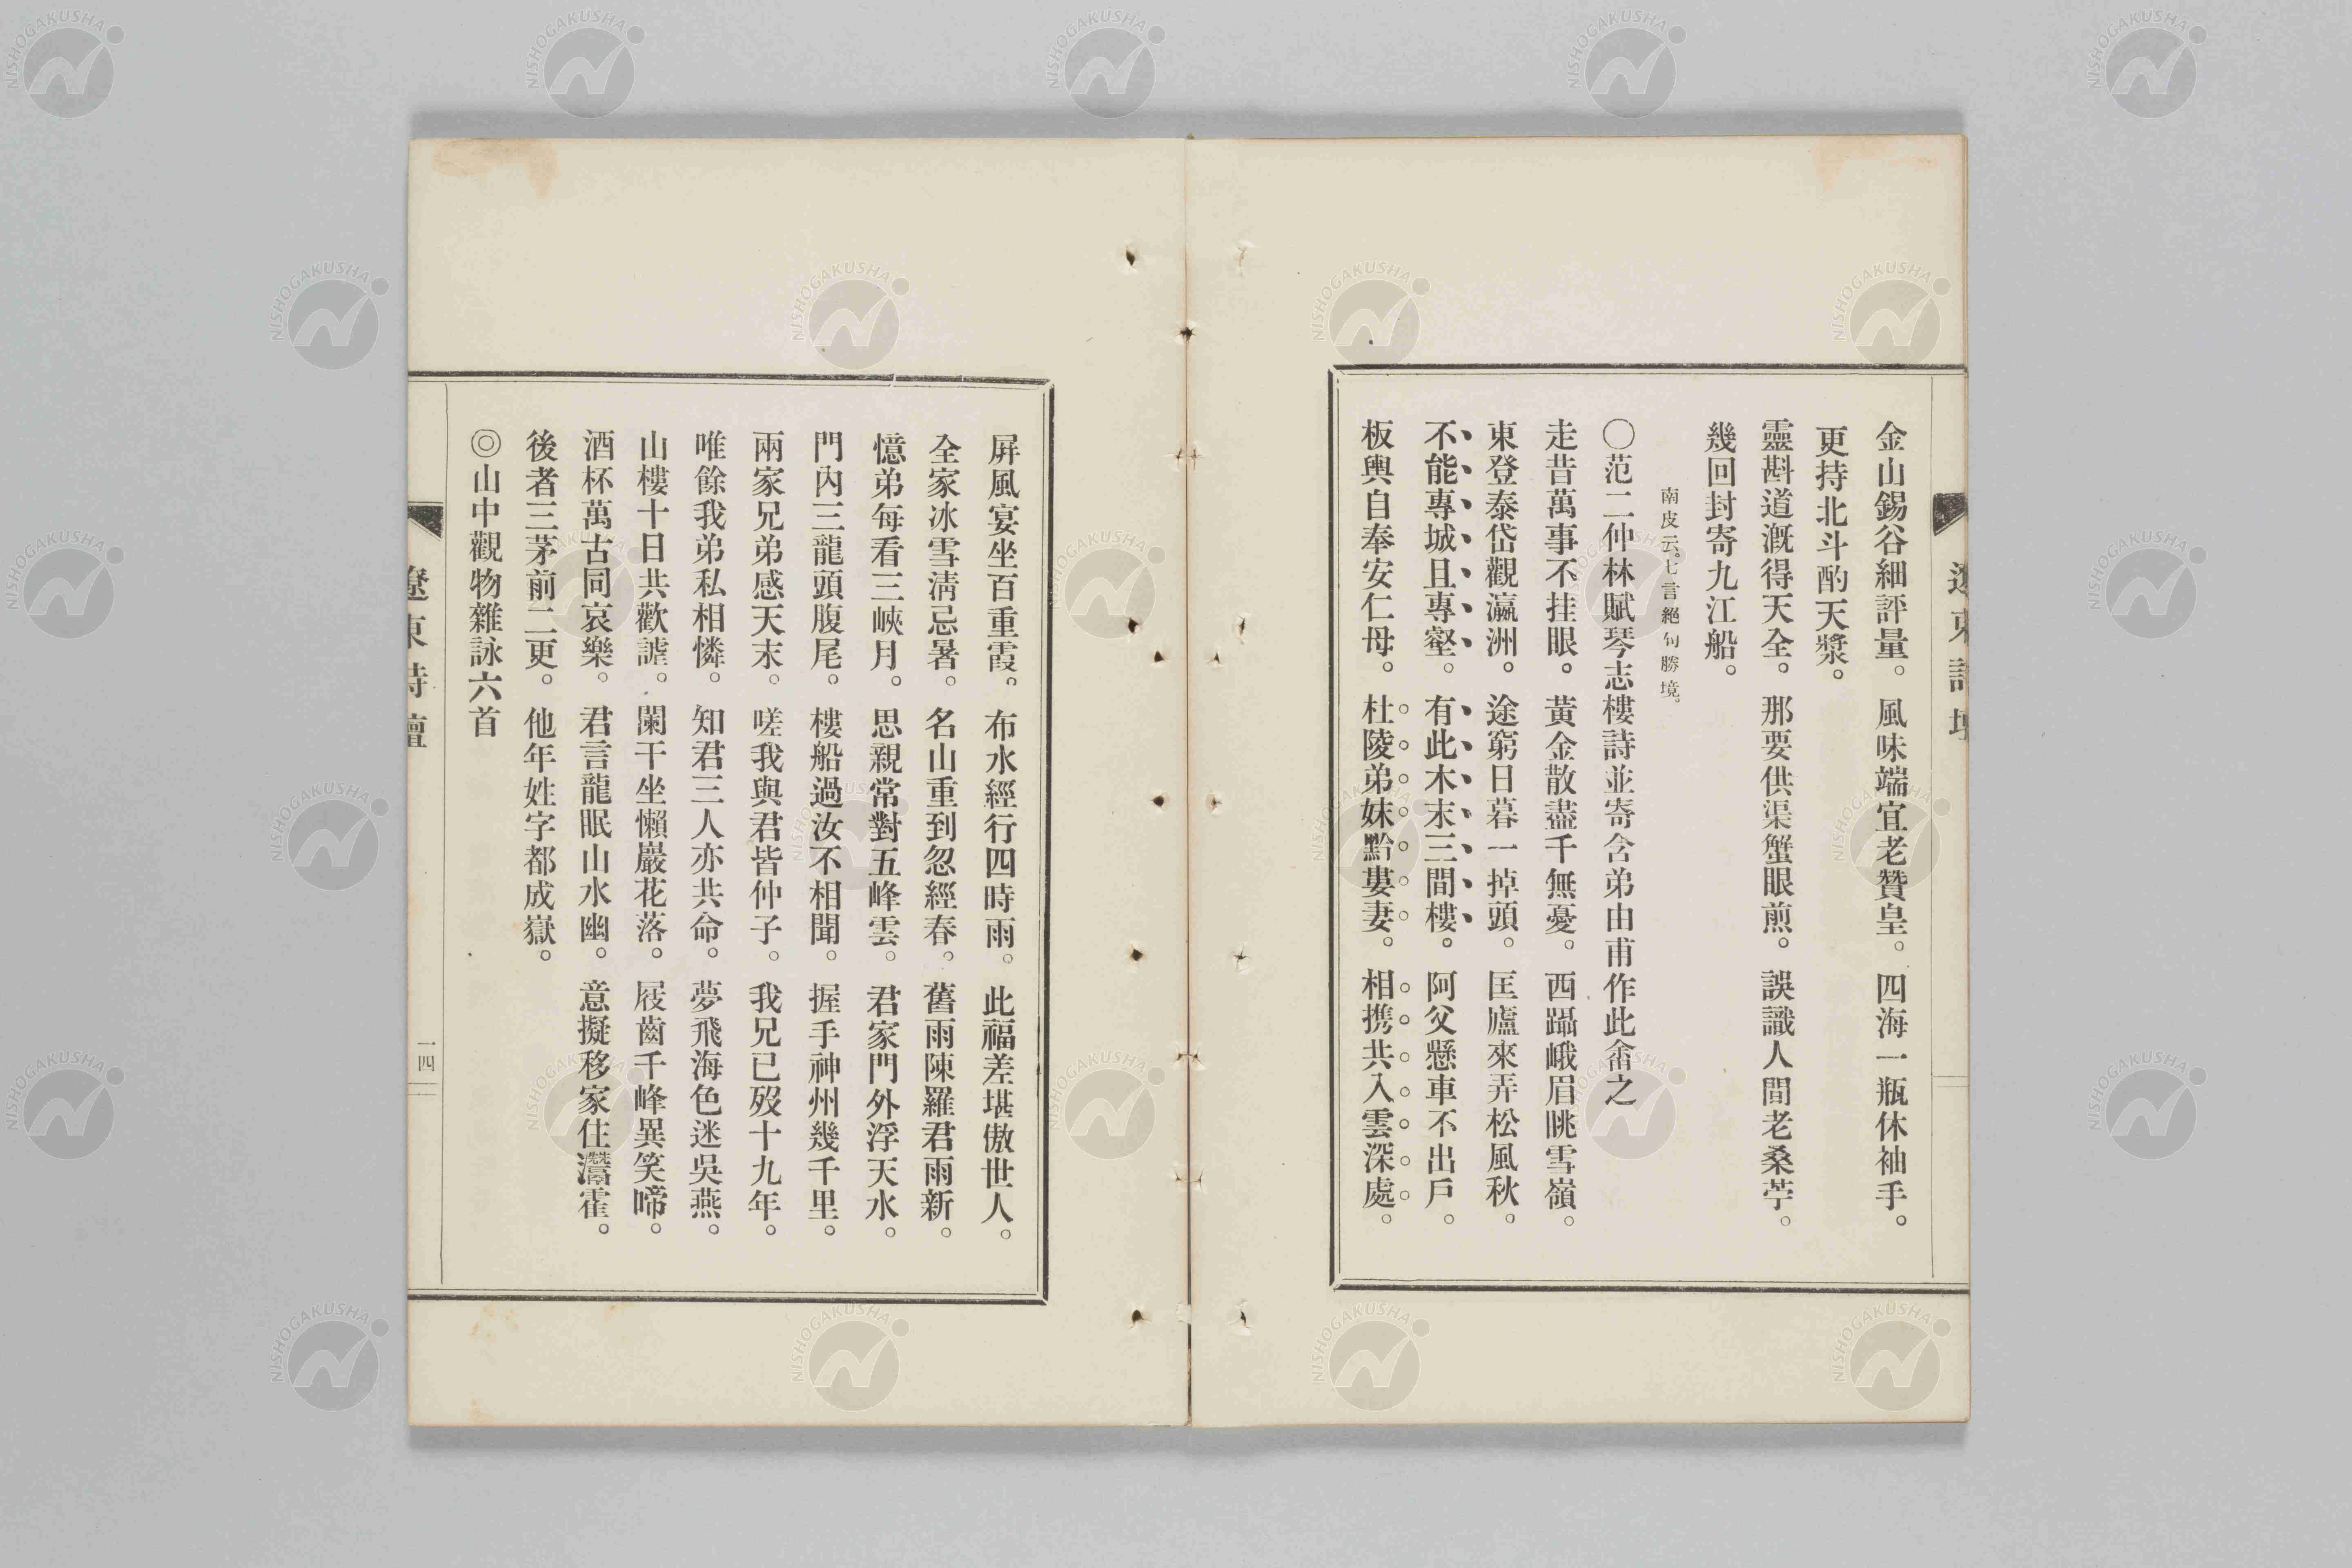 金山錫谷細評量。風味端宜老贊皇。四海一瓶休袖手。
更持北斗酌天漿。
靈斟道漑得天全。那要供渠蟹眼煎。誤識人間老桑苧。
幾回封寄九江船。
南皮云。七言絕句勝境。
〇范二仲林賦琴志樓詩並寄含弟由甫作此畣之
走昔萬事不挂眼。黃金散盡千無憂。西躡峨眉眺雪嶺。
東登泰岱觀瀛洲。途窮日暮一掉頭。匡廬來弄松風秋。
不能專城且專壑。有此木末三間樓。阿父懸車不出戶。
板輿自奉安仁母。杜陵弟妹黔婁妻。相携共入雲深處。
屛風宴坐百重霞。布水經行四時雨。此福差堪傲世人。
全家冰雪淸忌暑。名山重到忽經春。舊雨陳羅君雨新。
憶弟每看三峽月。思親常對五峰雲。君家門外浮天水。
門內三龍頭腹尾。樓船過汝不相聞。握手神州幾千里。
兩家兄弟感天末。嗟我與君皆仲子。我兄已歿十九年。
唯餘我弟私相憐。知君三人亦共命。夢飛海色迷吳燕。
山樓十日共歡謔。闌干坐懶巖花落。屐齒千峰異笑啼。
酒杯萬古同哀樂。君言龍眠山水幽。意擬移家住灊霍。
後者三茅前二更。他年姓字都成嶽。
◎山中觀物雜詠六首
遼東詩壇
一四